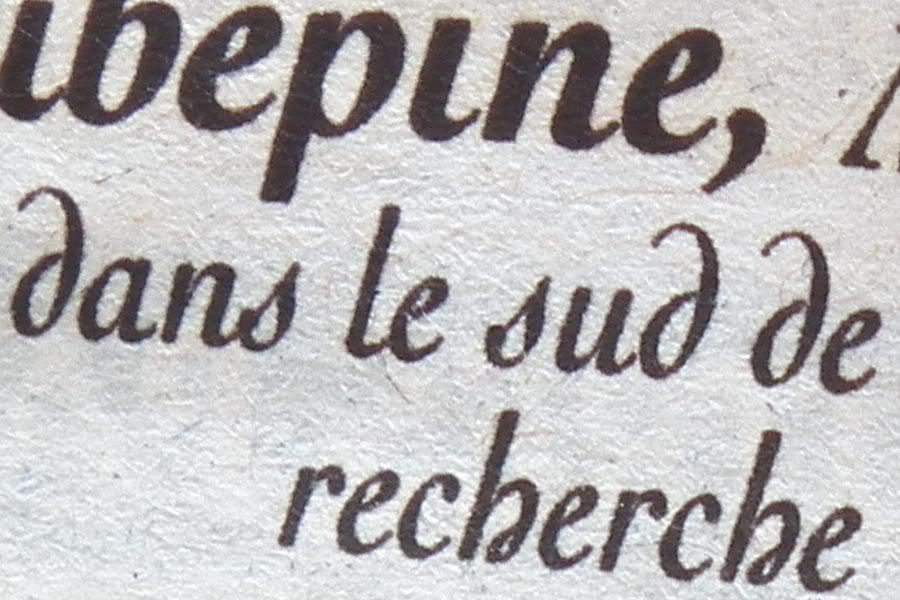 ibepine,
dans le sud de
recherche